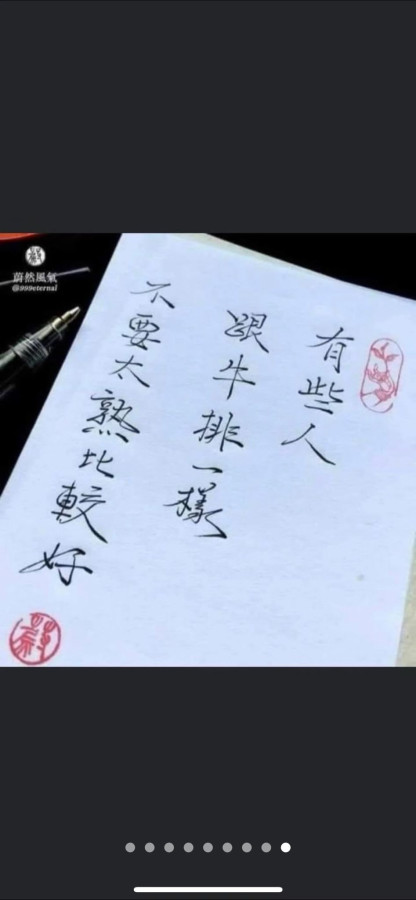 有些人
跟牛排一樣
不要太熟比較好
蔚然風氣
@999eternal